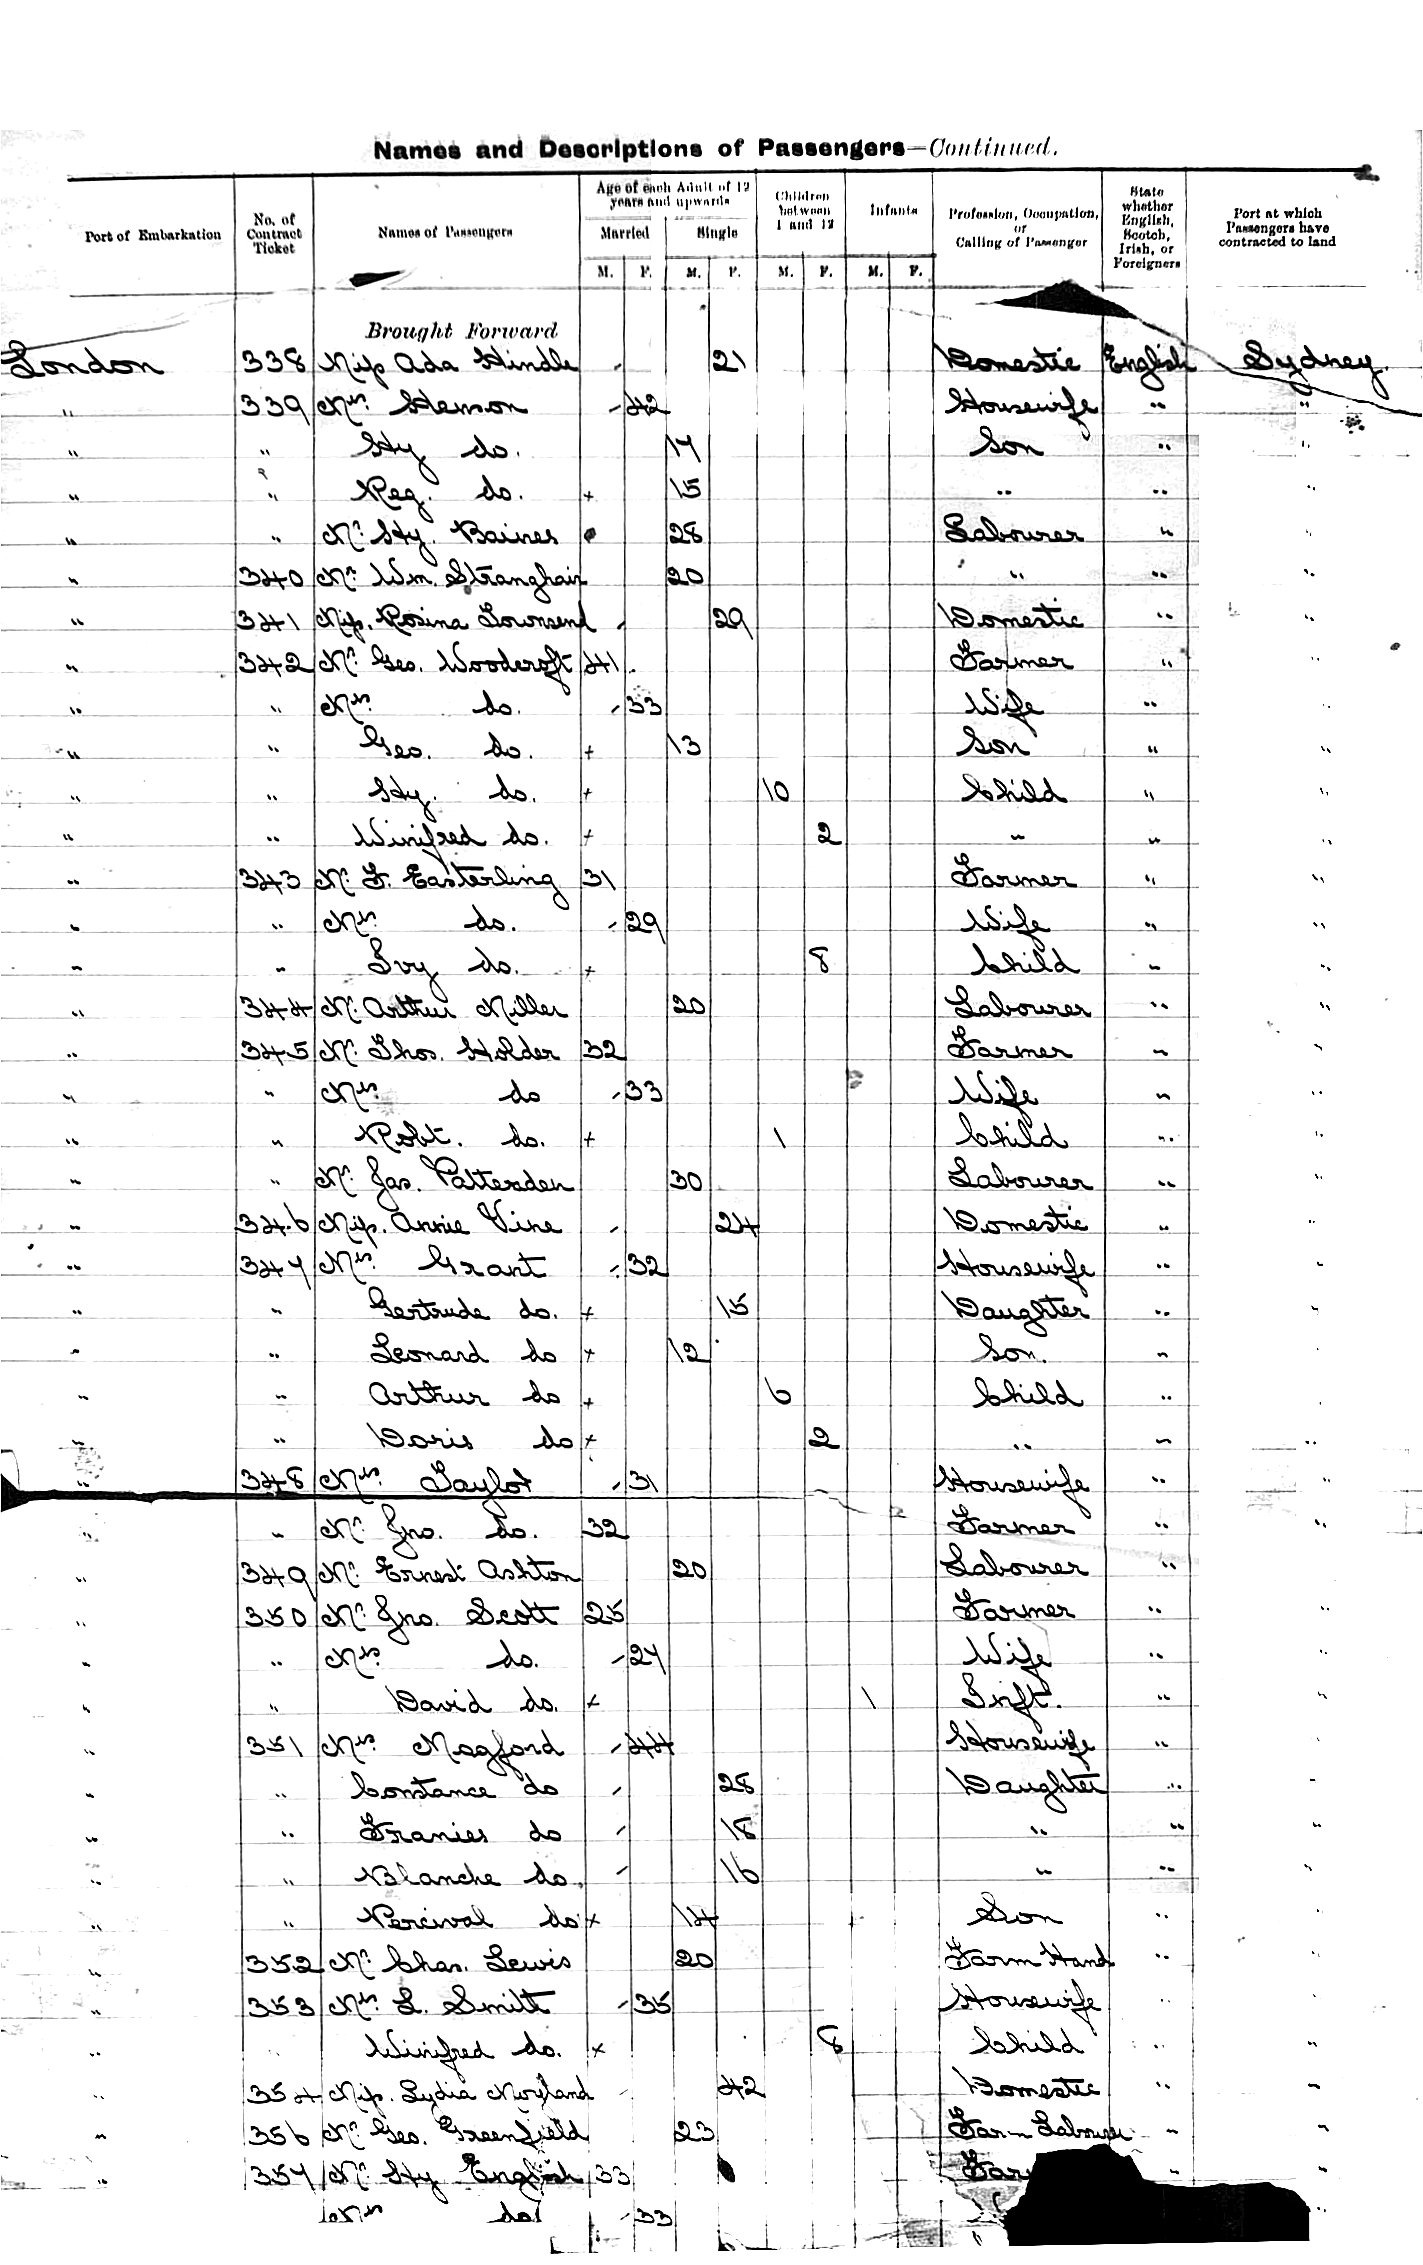 Names and Descriptions of Passengers—Continued.
Port of Embarkation
No. of Contract Ticket
Names of Passengers
Age of each Adult of 12 years and upwards
Married
Single
Children between 1 and 12
Infants
Profession, Occupation, or Calling of Passenger
State whether English, Scotch, Irish, or Foreigners
Port at which Passengers have contracted to land
M. F. M. F. M. F. M. F.
Brought Forward
London 338 Miss Ada Hindle - 21 Domestic English Sydney.
" 339 Mrs. Henson - 42 Housewife " "
" " Hy do. 17 Son " "
" " Reg. do. + 15 " " "
" " Mr. Hy. Baines 28 Labourer " "
" 340 Mr. Wm. Stranghair 20 " " "
" 341 Miss. Rosina Townsend - 29 Domestic " "
" 342 Mr. Geo. Woodcroft 41 Farmer " "
" " Mrs. do. - 33 Wife " "
" " Geo. do. + 13 Son " "
" " Hy. do. + 10 Child " "
" " Winifred do. + 2 " " "
" 343 Mr. F. Easterling 31 Farmer " "
" " Mrs. do. - 29 Wife " "
" " Ivy do. + 8 Child " "
" 344 Mr. Arthur Miller 20 Labourer " "
" 345 Mr. Thos. Holder 32 Farmer " "
" " Mrs. do - 33 Wife " "
" " Robt. do. + 1 Child " "
" " Mr. Jas. Pattenden 30 Labourer " "
" 346 Miss. Annie Vine - 24 Domestic " "
" 347 Mrs. Grant - 32 Housewife " "
" " Gertrude do. + 15 Daughter " "
" " Leonard do + 12 Son. " "
" " Arthur do + 6 Child " "
" " Doris do + 2 " " "
" 348 Mrs. Taylor - 31 Housewife " "
" " Mr. Jno. do. 32 Farmer " "
" 349 Mr. Ernest Ashton 20 Labourer " "
" 350 Mr. Jno. Scott 25 Farmer " "
" " Mrs. do. - 27 Wife " "
" " David do. + 1 Inft. " "
" 351 Mrs. Mogford - 44 Housewife " "
" " Constance do - 28 Daughter " "
" " Francies do - 18 " " "
" " Blanche do. - 16 " " "
" " Percival do + 14 Son " "
" 352 Mr. Chas. Lewis 20 Farm Hand " "
" 353 Mrs. L. Smith - 35 Housewife " "
" " Winifred do. + 8 Child " "
" 354 Miss. Lydia Moryland - 42 Domestic " "
" 356 Mr. Geo. Greenfield 23 Farm Labourer " "
" 357 Mr. Hy English 33 " "
Mrs do - 33 "